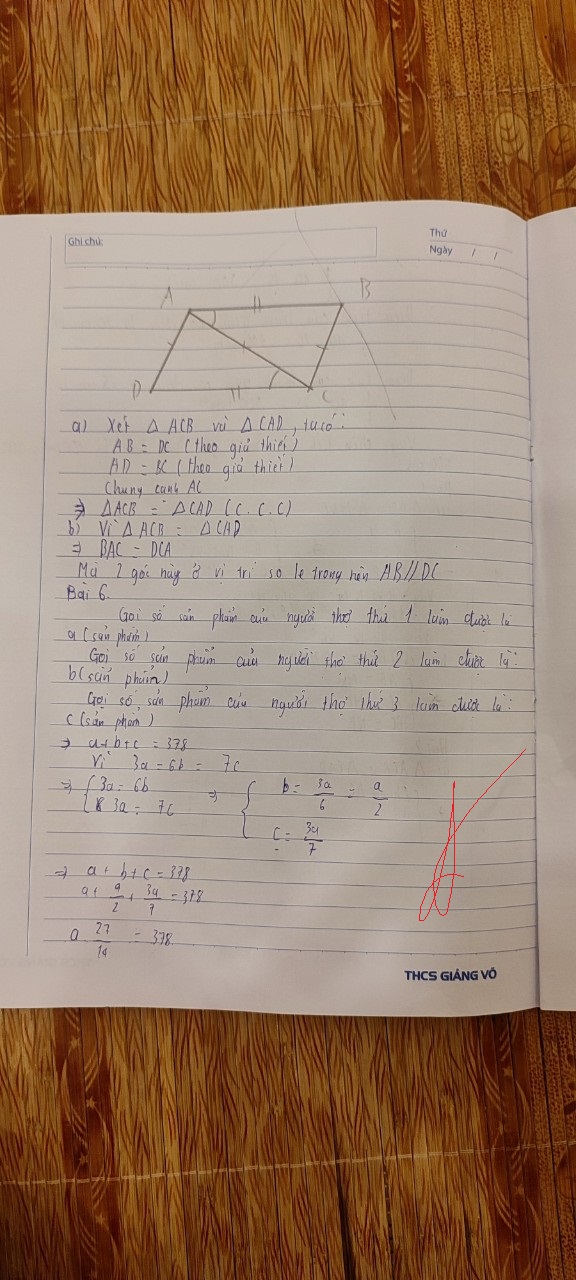 Ghi chú:
Thứ
Ngày / /
A
B
D
C
a) Xét Δ ACB và Δ CAD, ta có:
AB = DC (theo giả thiết)
AD = BC (theo giả thiết)
Chung cạnh AC
⇒ ΔACB = ΔCAD (C.C.C)
b) Vì ΔACB = ΔCAD
⇒ BAC = DCA
Mà 2 góc này ở vị trí so le trong nên AB//DC
Bài 6.
Gọi số sản phẩm của người thợ thứ 1 làm được là
a (sản phẩm)
Gọi số sản phẩm của người thợ thứ 2 làm được là:
b (sản phẩm)
Gọi số sản phẩm của người thợ thứ 3 làm được là:
c (sản phẩm)
⇒ a+b+c = 378
Vì 3a = 6b = 7c
⇒ { 3a = 6b ⇒ { b = 3a/6 = a/2
3a = 7c c = 3a/7
⇒ a + b + c = 378
a + a/2 + 3a/7 = 378
a 27/14 = 378
THCS GIẢNG VÕ